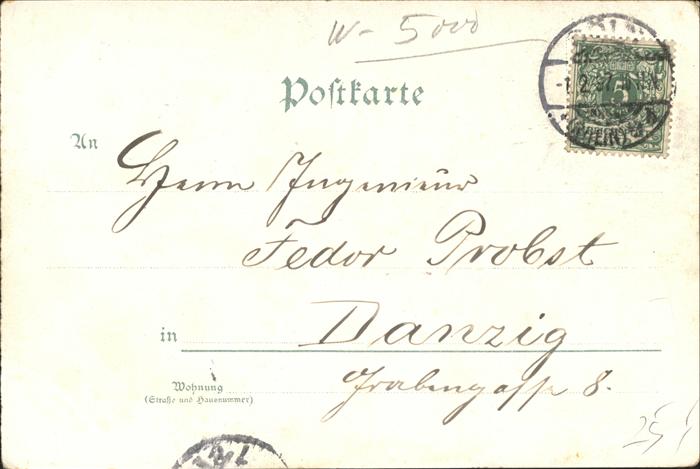 W – 5000
Postkarte
5
-1.2.97
An
Herrn Ingenieur
Fedor Probst
in Danzig
Wohnung
(Straße und Hausnummer)
Grabengasse 8.
25